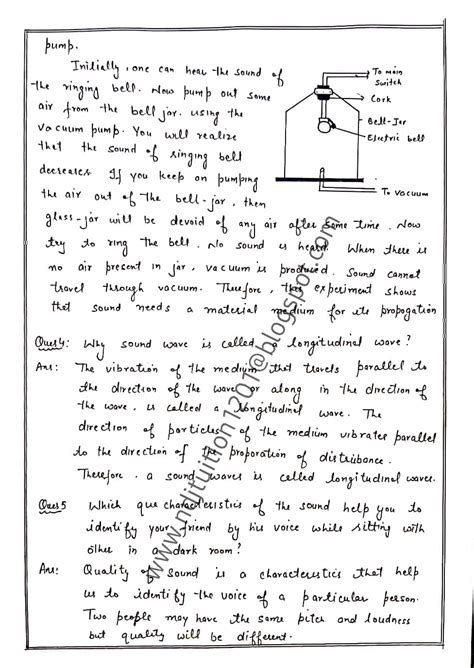 pump.
Initially, one can hear the sound of
the ringing bell. Now pump out some
air from the bell jar. using the
vacuum pump. You will realize
that the sound of ringing bell
decreases If you keep on pumping
the air out of the bell-jar, then
glass-jar will be devoid of any air after some time. Now
try to ring the bell. No sound is heard. When there is
no air present in jar, vacuum is produced. Sound cannot
travel through vacuum. Therefore, this experiment shows
that sound needs a material medium for its propogation
To main
Switch
Cork
Bell-Jar
Electric bell
To vacuum
Ques4: Why sound wave is called a longitudinal wave?
Ans: The vibration of the medium that travels parallel to
the direction of the wave or along in the direction of
the wave, is called a longitudinal wave. The
direction of particles of the medium vibrates parallel
to the direction of the proporation of distubance.
Therefore, a sound waves is called longitudinal waves.
Ques5 Which que characteristics of the sound help you to
identify your friend by his voice while sitting with
other in a dark room?
Ans: Quality of sound is a characteristics that help
us to identify the voice of a particular person.
Two people may have the same pitch and loudness
but quality will be different.